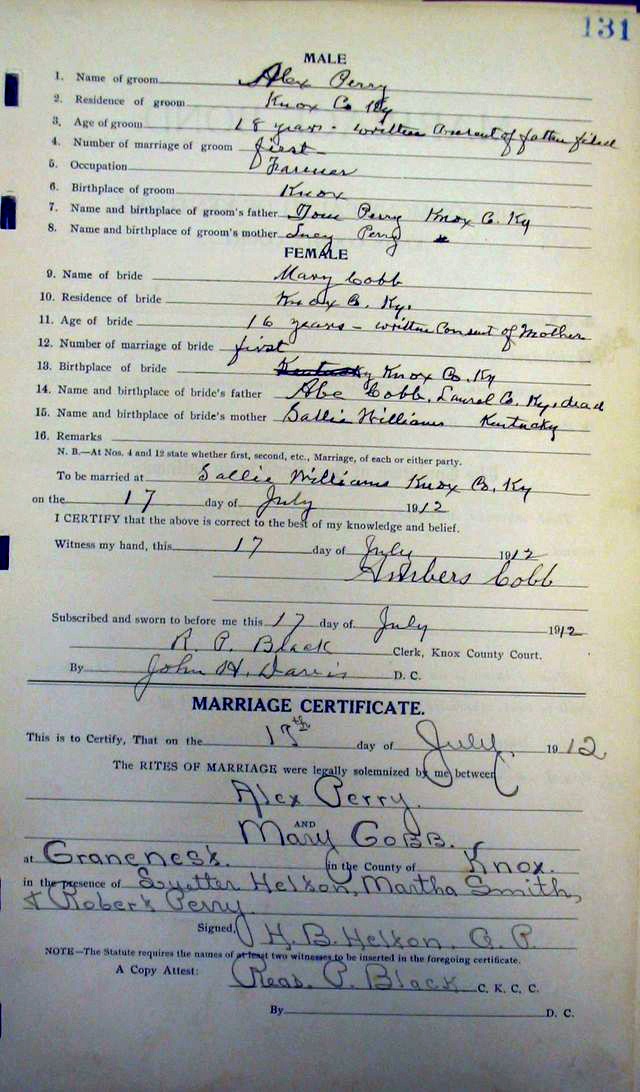 131
MALE
1. Name of groom Alex Perry
2. Residence of groom Knox Co Ky
3. Age of groom 18 years - written Consent of father filed
4. Number of marriage of groom first
5. Occupation Farmer
6. Birthplace of groom Knox
7. Name and birthplace of groom's father Tom Perry Knox Co. Ky
8. Name and birthplace of groom's mother Lucy Perry "
FEMALE
9. Name of bride Mary Cobb
10. Residence of bride Knox Co. Ky.
11. Age of bride 16 years - written Consent of Mother
12. Number of marriage of bride first
13. Birthplace of bride Kentucky Knox Co. Ky
14. Name and birthplace of bride's father Abe Cobb, Laurel Co. Ky, dead
15. Name and birthplace of bride's mother Sallie Williams Kentucky
16. Remarks
N. B.—At Nos. 4 and 12 state whether first, second, etc., Marriage, of each or either party.
To be married at Sallie Williams Knox Co. Ky
on the 17 day of July 1912
I CERTIFY that the above is correct to the best of my knowledge and belief.
Witness my hand, this 17 day of July 1912
Ambers Cobb
Subscribed and sworn to before me this 17 day of July 1912
R. P. Black Clerk, Knox County Court.
By John H. Davis D. C.
MARRIAGE CERTIFICATE.
This is to Certify, That on the 17th day of July. 1912
The RITES OF MARRIAGE were legally solemnized by me between
Alex Perry.
AND
Mary Cobb.
at in the County of Knox.
in the presence of Helton, Martha Smith,
& Robert Perry
Signed, H. B. Helton.
NOTE—The Statute requires the names of at least two witnesses to be inserted in the foregoing certificate.
A Copy Attest: Reas. P. Black C. K. C. C.
By D. C.